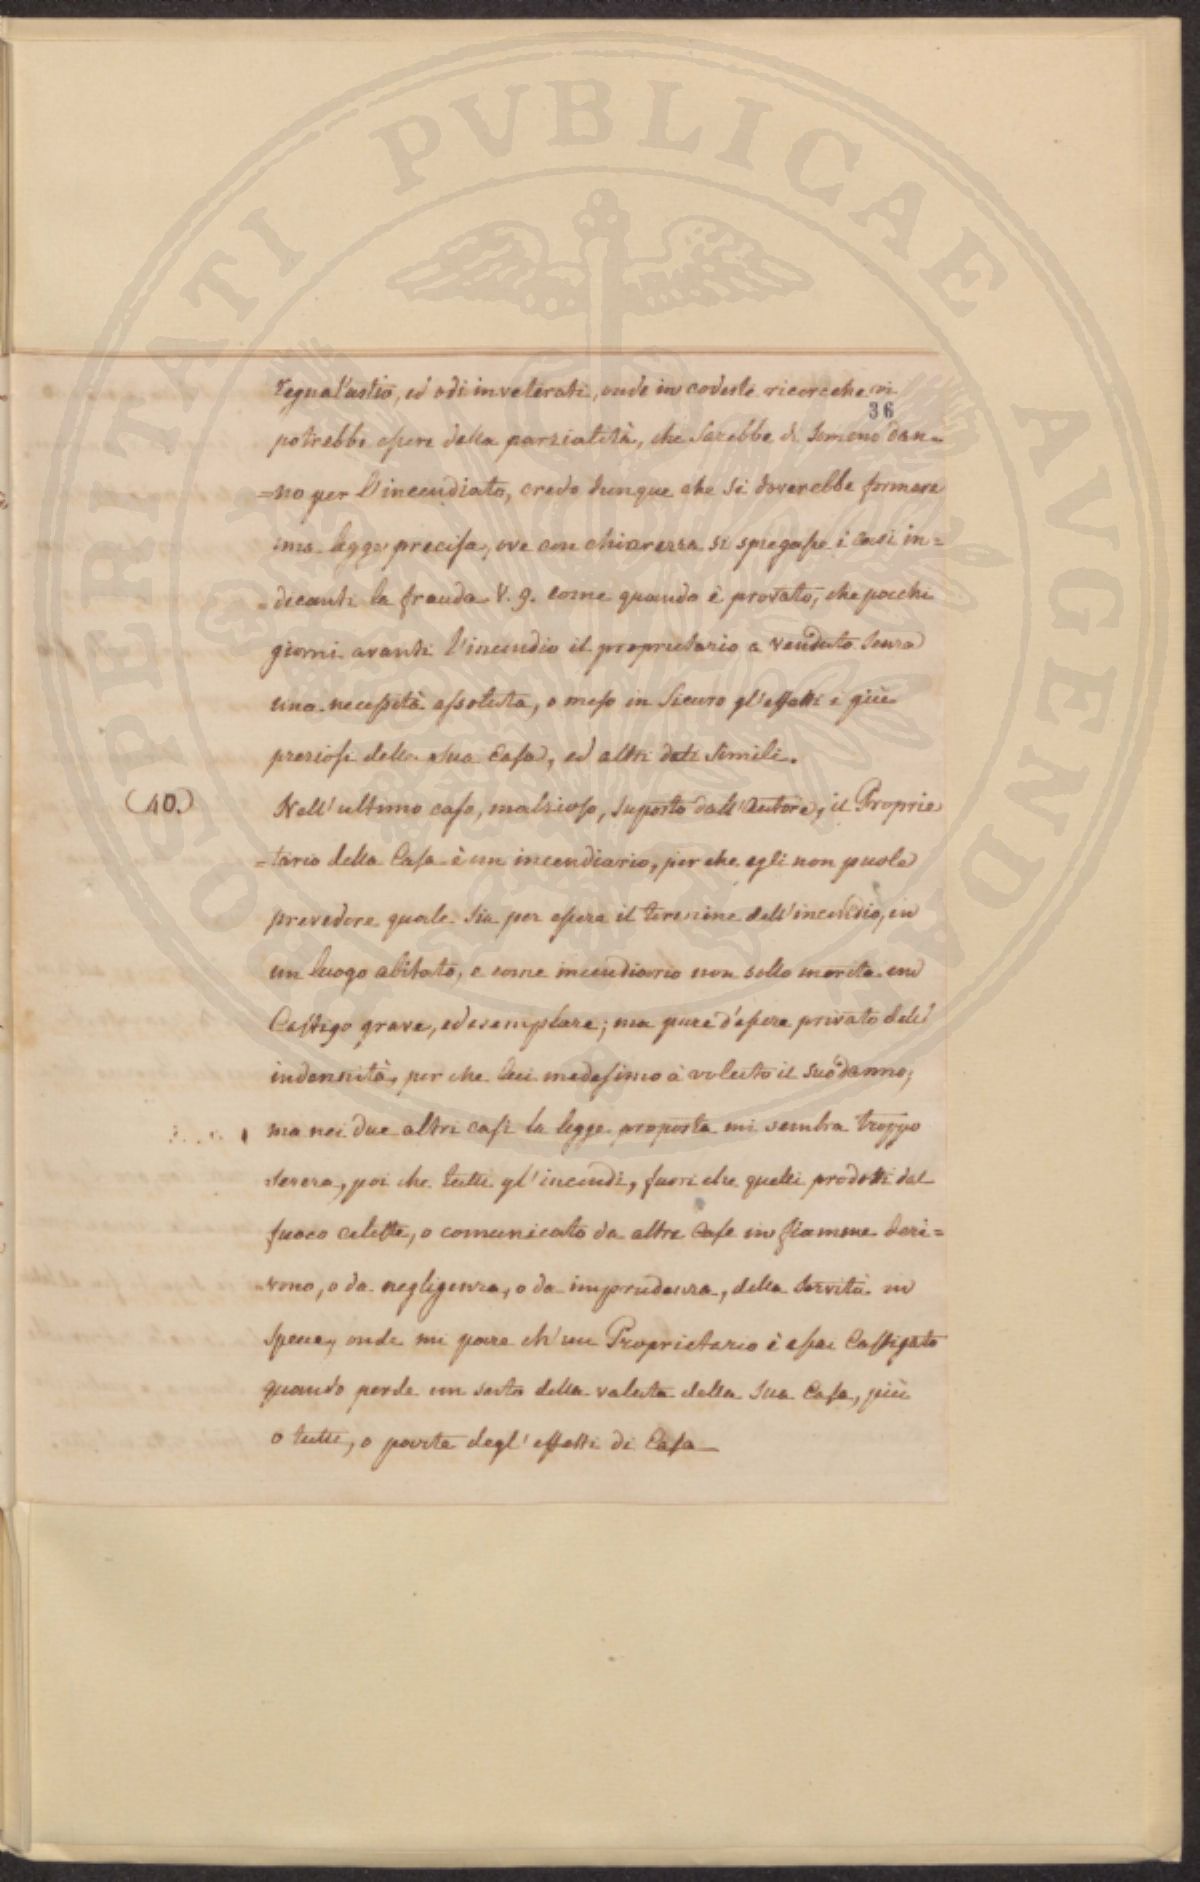 PROSPERITATI PVBLICAE AVGENDAE
regna l'astio, ed odi inveterati, onde in codeste ricerche vi
36
potrebbe essere della parzialità, che sarebbe di somono dan=
=no per l'incendiato, credo dunque che si doverebbe formare
una legge precisa, ove con chiarezza si spiegasse i casi in=
=dicanti la frauda V. g. come quando è provato, che pochi
giorni avanti l'incendio il proprietario a venduto senza
una necessità assoluta, o messo in sicuro gl'effetti i più
preziosi della sua Casa, ed altri dati simili.
(40.) Nell'ultimo caso, malzioso, suposto dall'autore, il Proprie
=tario della Casa è un incendiario, per che egli non puole
prevedere quale sia per essere il termine dell'incendio, in
un luogo abitato, e come incendiario non sollo merita un
Castigo grave, ed esemplare; ma pure d'essere privato dell'
indennità, per che lui medesimo à voluto il suo danno;
ma nei due altri casi la legge proposta mi sembra troppo
severa, poi che tutti gl'incendi, fuori che quelli prodotti dal
fuoco celeste, o comunicato da altre Case in fiamme deri=
=vono, o da negligenza, o da imprudenza, della servitù in
specie, onde mi pare ch'un Proprietario è assai Castigato
quando perde un sesto della valuta della sua Casa, più
o tutti, o parte degl'effetti di Casa